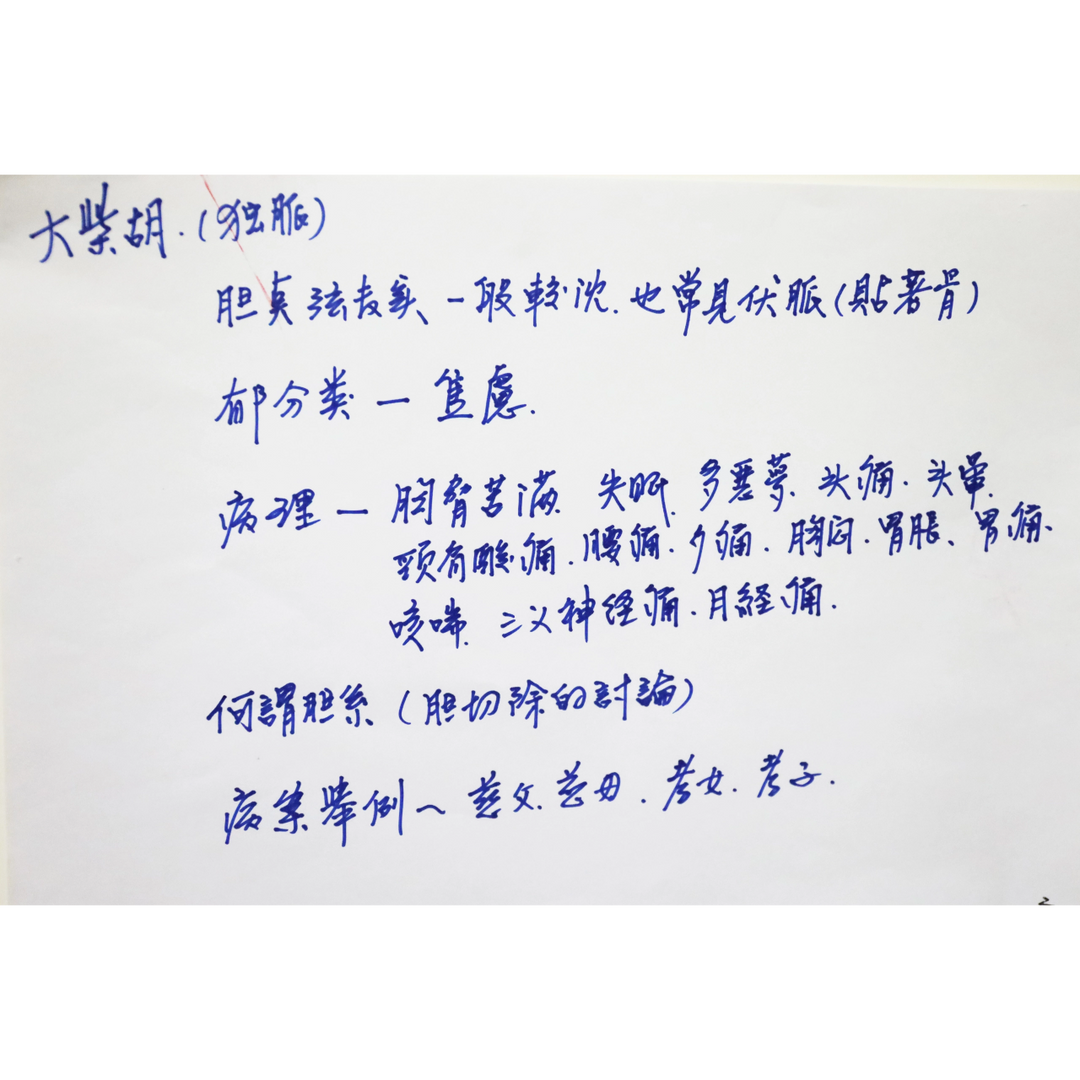 大柴胡.(独脈)
胆真弦长实 一般較沈.也常見伏脈(貼著骨)
郁分类 — 焦慮.
病理 — 胸脅苦满 失眠.多悪夢.头痛.头暈.
頸肩酸痛.腰痛.夕痛.胸闷.胃脹、胃痛、
咳喘.三义神经痛.月経痛.
何謂胆系(胆切除的討論)
病案舉例~慈父.慈母.孝女.孝子.